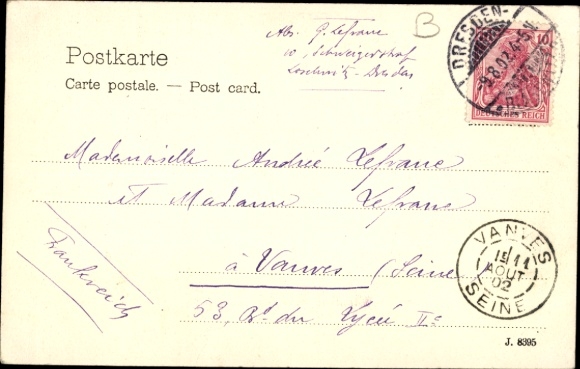 Abs. G. Lefranc
B
Postkarte
Carte postale. — Post card.
Loschwitz - Dresden
DRESDEN-
8.02.4-5N.
10
DEUTSCHES REICH
Mademoiselle Andrée Lefranc
et Madame Lefranc
à Vanves (Seine
Frankreich
53, Bd du Lycée
VANVES
11
AOUT
02
SEINE
J. 8395